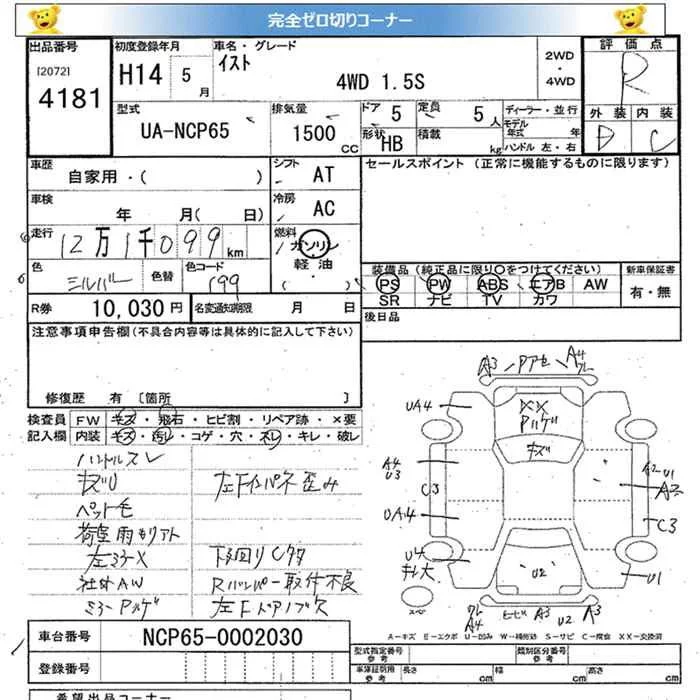 完全ゼロ切りコーナー
出品番号 初度登録年月 車名・グレード 2WD・4WD 評価点
[2072] H14 5月 イスト R
4181 4WD 1.5S 外装 内装
型式 排気量 ドア 5 定員 5人 ディーラー・並行 D C
UA-NCP65 1500cc 形状 HB 積載 kg モデル年式 年 ハンドル 左・右
車歴 シフト セールスポイント (正常に機能するものに限ります)
自家用・( ) AT
車検 年 月( 日) 冷房 AC
走行 12万1千099km 燃料 ガソリン 軽油 ( )
色 シルバー 色替 色コード 199 装備品 (純正品に限り○をつけてください) 新車保証書
PS PW ABS エアB AW 有・無
SR ナビ TV カワ
R券 10,030円 名変通知期限 月 日 後日品
注意事項申告欄(不具合内容等は具体的に記入して下さい)
修復歴 有 〔箇所 〕
検査員 FW キズ・飛石・ヒビ割・リペア跡・×要
記入欄 内装 キズ・汚レ・コゲ・穴・スレ・キレ・破レ
ハンドルスレ
キズU 左Fインパネ歪み
ペット毛
荷室雨モリアト
左ミラーX 下廻りCタタ
社外AW Rバンパー取付不良
ミラーアルゲ 左FドアノブX
A3 アセ A4
UA4 XX
アルゲ
キズ
A4 U3 A2 U1
C3 A2
UA4 C3
U4 キレ大 U2 U1
スペア
A4 ヒビ A3 U2 A3
A-キズ E-エクボ U-凹み W-補修跡 S-サビ C-腐食 XX-交換済
車台番号 NCP65-0002030
登録番号
型式指定番号 参考 類別区分番号 参考
車庫証明用 参考 長さ cm 幅 cm 高さ cm
希望出品コーナー